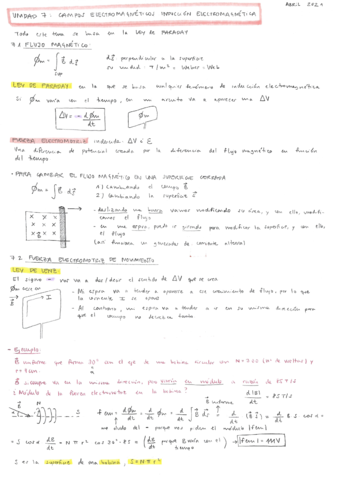 ABRIL 2024
UNIDAD 7: CAMPOS ELECTROMAGNÉTICOS. INDUCCIÓN ELECTROMAGNÉTICA
Todo este tema se basa en la LEY DE FARADAY
7.1 FLUJO MAGNÉTICO:
Φm = ∫ B dS
sup
dS perpendicular a la superficie
su unidad → T/m² = Weber = Wb
LEY DE FARADAY: en la que se basa cualquier fenómeno de inducción electromagnética
Si Φm varía con el tiempo, en un circuito va a aparecer una ΔV
ΔV = (-) dΦm / dt
Φm
FUERZA ELECTROMOTRIZ inducida: ΔV = E
Una diferencia de potencial creada por la diferencia del flujo magnético en función
del tiempo
- PARA CAMBIAR EL FLUJO MAGNÉTICO EN UNA SUPERFICIE CERRADA
Φm = ∫ B dS
1) Cambiando el campo B
2) Cambiando la superficie S
x x x
- deslizando una barra vamos modificando su área, y con ello, modifi-
camos el flujo
- en una espira, puede ir girando para modificar la superficie, y con ello,
el flujo
Las llamamos un generador de corriente alterna
7.2. FUERZA ELECTROMOTRIZ DE MOVIMIENTO
LEY DE LENZ:
El signo nos va a decidir el sentido de ΔV que se crea
- Mi espira va a tender a oponerse a ese movimiento de flujo, por lo que
la corriente I se opone
- Al contrario, mi espira va a tender a ir en su misma dirección para
que el campo no debilite tanto
- Ejemplo:
B uniforme que forma 30° con el eje de una bobina circular con N = 300 (nº de vueltas) y
r = 4 cm.
B siempre va en la misma dirección, pero varía en módulo a razón de 85 T/s
¿Módulo de la fuerza electromotriz en la bobina?
B uniforme
d|B| / dt = 85 T/s
fem = dΦm / dt = d / dt Φm = d / dt ∫ B dS = d / dt (B S) = d / dt B S cos α =
me olvido del - porque nos piden el módulo |fem|
= S cos α dB / dt = N π r² cos 30° · 85 = (dB / dt porque B varía con el tiempo) → |fem| = 111 V
S es la superficie de una bobina, S = N π r²